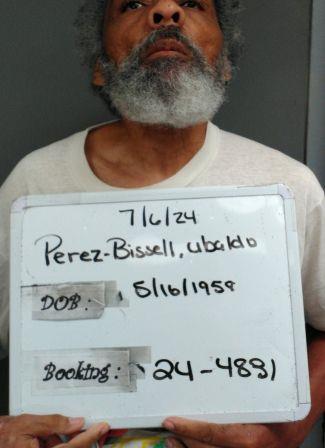 7/6/24
Perez-Bissell, Ubaldo
DOB: 5/16/1959
Booking: 24-4891